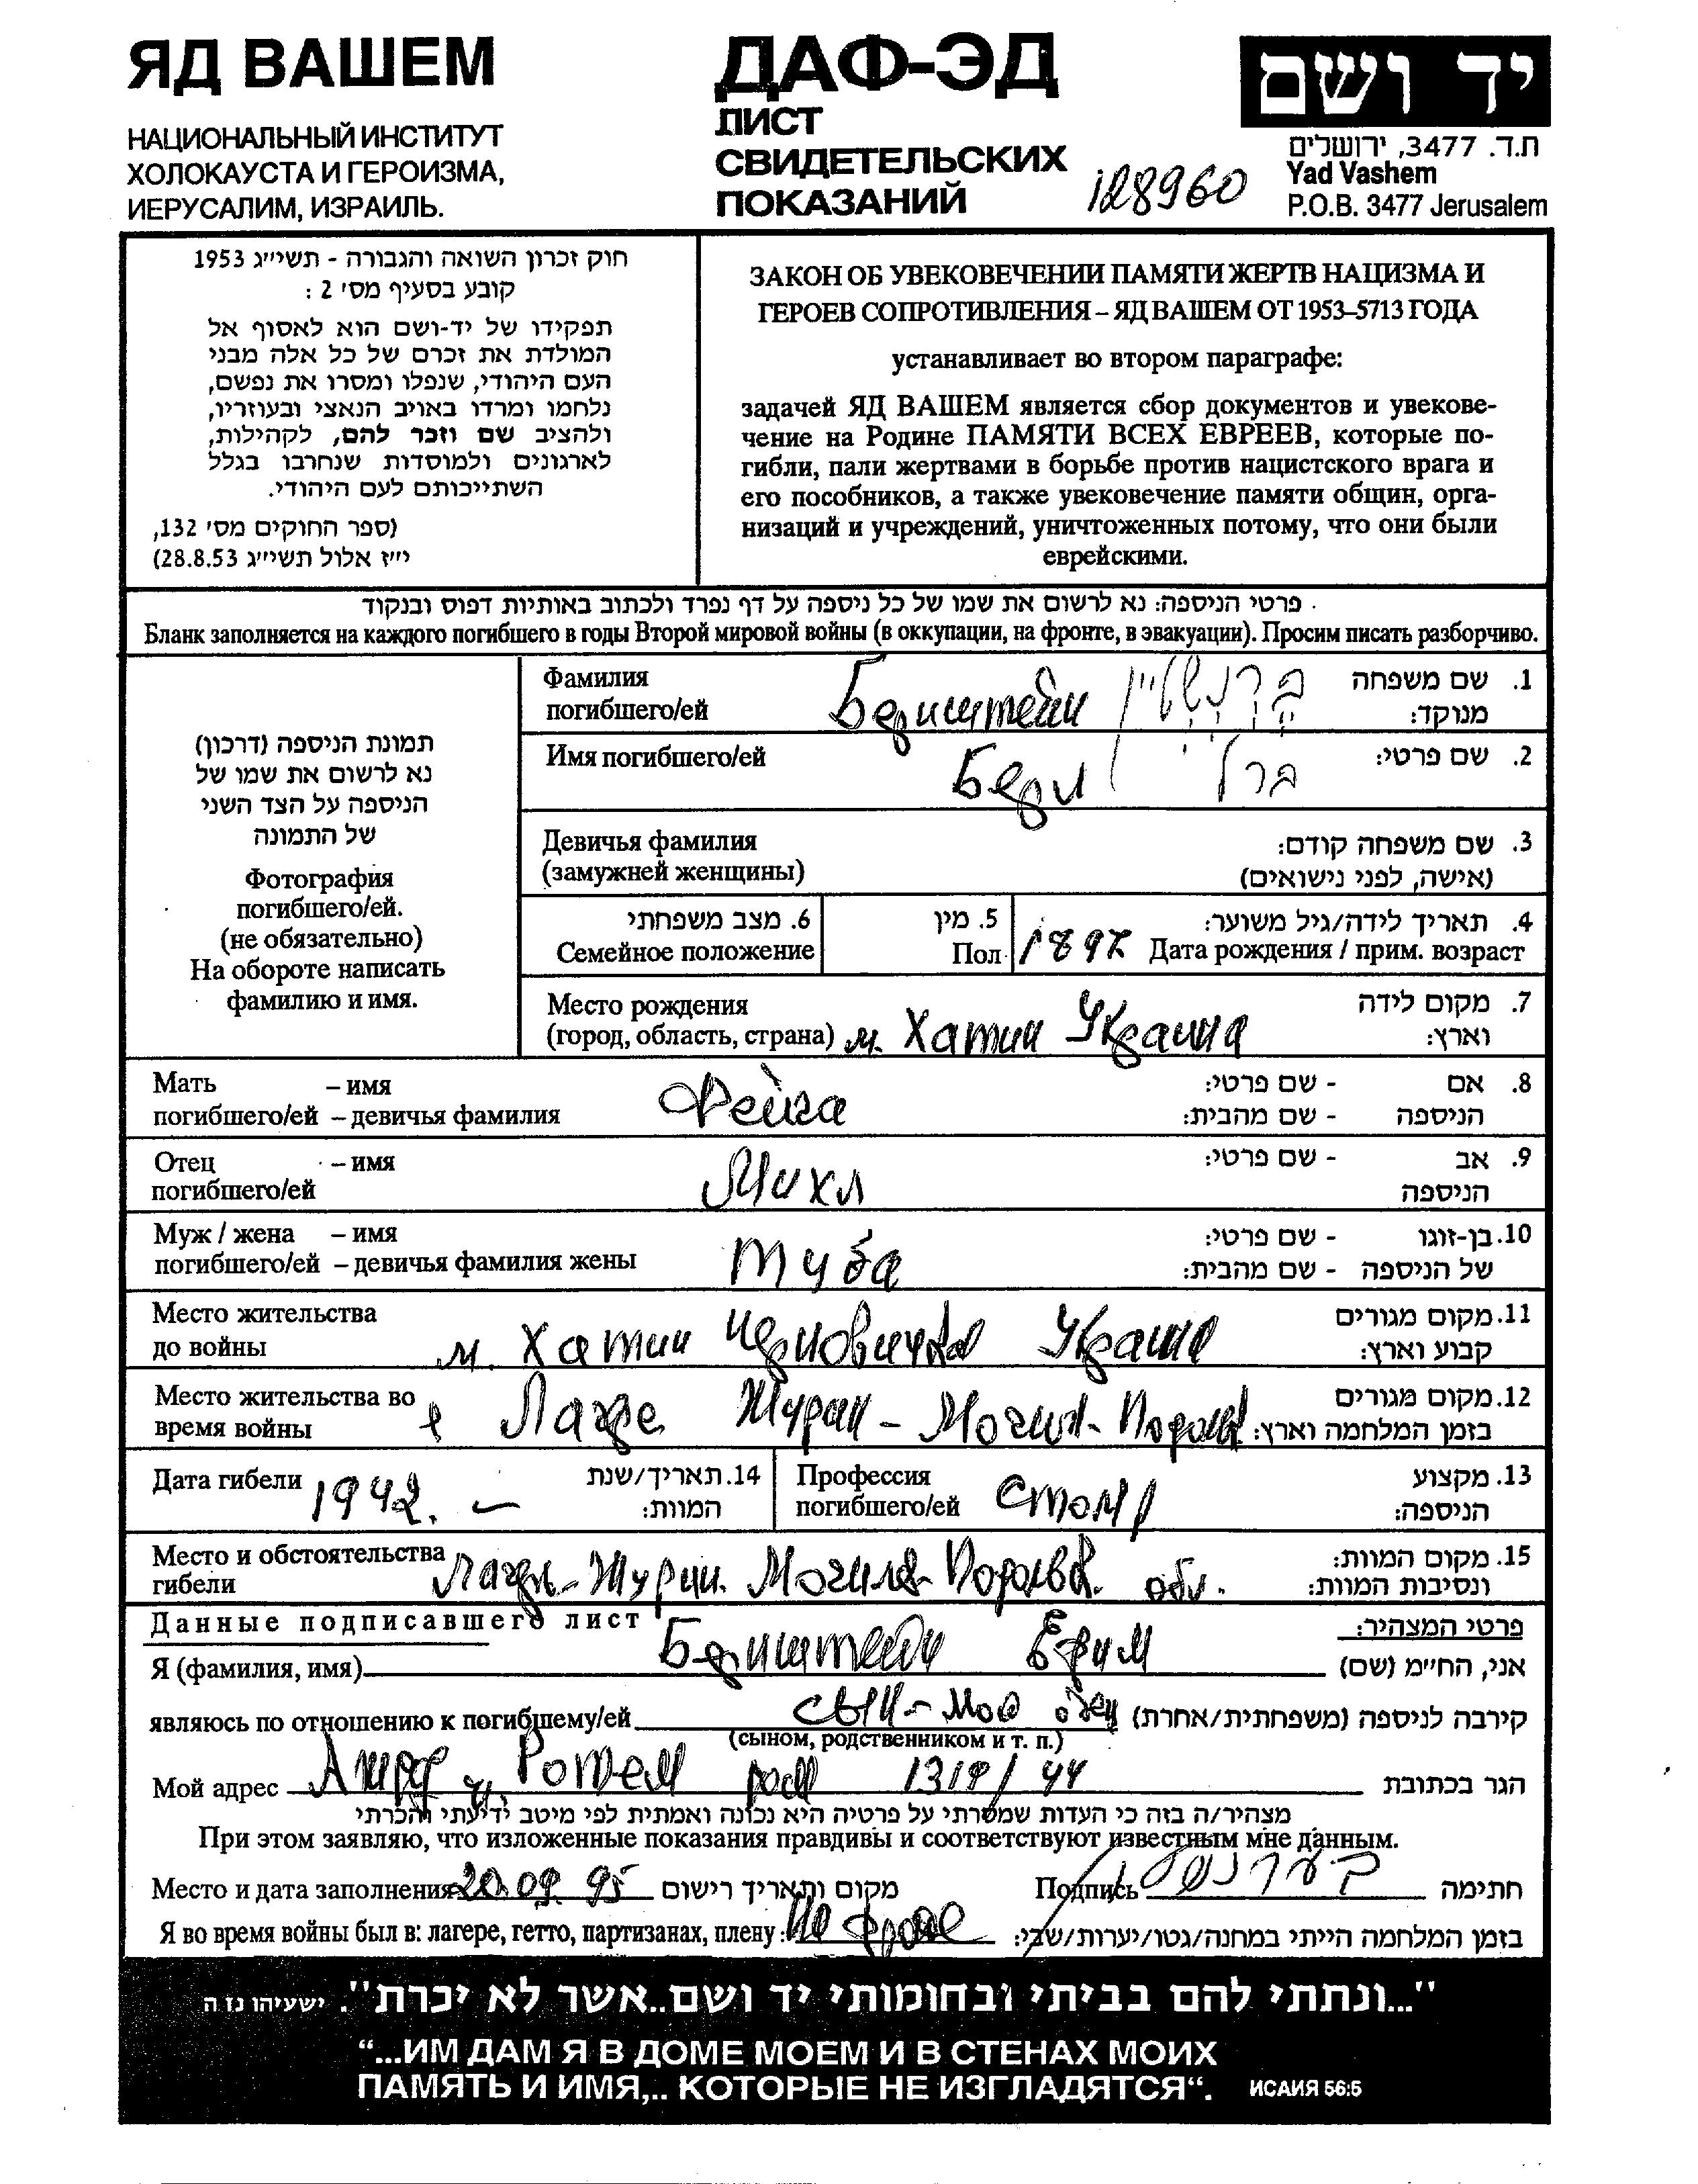 ЯД ВАШЕМ
НАЦИОНАЛЬНЫЙ ИНСТИТУТ
ХОЛОКАУСТА И ГЕРОИЗМА,
ИЕРУСАЛИМ, ИЗРАИЛЬ.
ДАФ-ЭД
ЛИСТ
СВИДЕТЕЛЬСКИХ
ПОКАЗАНИЙ
128960
יד ושם
ת.ד. 3477, ירושלים
Yad Vashem
P.O.B. 3477 Jerusalem
חוק זכרון השואה והגבורה - תשי״ג 1953
קובע בסעיף מס׳ 2 :
תפקידו של יד-ושם הוא לאסוף אל
המולדת את זכרם של כל אלה מבני
העם היהודי, שנפלו ומסרו את נפשם,
נלחמו ומרדו באויב הנאצי ובעוזריו,
ולהציב שם וזכר להם, לקהילות,
לארגונים ולמוסדות שנחרבו בגלל
השתייכותם לעם היהודי.
(ספר החוקים מס׳ 132,
י״ז אלול תשי״ג 28.8.53)
ЗАКОН ОБ УВЕКОВЕЧЕНИИ ПАМЯТИ ЖЕРТВ НАЦИЗМА И
ГЕРОЕВ СОПРОТИВЛЕНИЯ – ЯД ВАШЕМ ОТ 1953–5713 ГОДА
устанавливает во втором параграфе:
задачей ЯД ВАШЕМ является сбор документов и увекове-
чение на Родине ПАМЯТИ ВСЕХ ЕВРЕЕВ, которые по-
гибли, пали жертвами в борьбе против нацистского врага и
его пособников, а также увековечение памяти общин, орга-
низаций и учреждений, уничтоженных потому, что они были
еврейскими.
פרטי הניספה: נא לרשום את שמו של כל ניספה על דף נפרד ולכתוב באותיות דפוס ובנקוד
Бланк заполняется на каждого погибшего в годы Второй мировой войны (в оккупации, на фронте, в эвакуации). Просим писать разборчиво.
תמונת הניספה (דרכון)
נא לרשום את שמו של
הניספה על הצד השני
של התמונה
Фотография
погибшего/ей.
(не обязательно)
На обороте написать
фамилию и имя.
Фамилия
погибшего/ей Бернштейн ברנשטיין
1. שם משפחה
מנוקד:
Имя погибшего/ей Берл ברל 2. שם פרטי:
Девичья фамилия
(замужней женщины)
3. שם משפחה קודם:
(אישה, לפני נישואים)
6. מצב משפחתי
Семейное положение
5. מין
Пол
4. תאריך לידה/גיל משוער:
1897 Дата рождения / прим. возраст
Место рождения
(город, область, страна) м. Хатин Украина
7. מקום לידה
וארץ:
Мать – имя
погибшего/ей – девичья фамилия Фейга
8. אם - שם פרטי:
הניספה - שם מהבית:
Отец – имя
погибшего/ей Михл
9. אב - שם פרטי:
הניספה
Муж / жена – имя
погибшего/ей – девичья фамилия жены Туба
10. בן-זוגו - שם פרטי:
של הניספה - שם מהבית:
Место жительства
до войны м. Хатин Украина
11. מקום מגורים
קבוע וארץ:
Место жительства во
время войны
12. מקום מגורים
בזמן המלחמה וארץ:
Дата гибели 1942. –
14. תאריך/שנת
המוות:
Профессия
погибшего/ей
13. מקצוע
הניספה:
Место и обстоятельства
гибели обл.
15. מקום המוות:
ונסיבות המוות:
Данные подписавшего лист
פרטי המצהיר:
Я (фамилия, имя) Бернштейн Ефим אני, החי״מ (שם)
являюсь по отношению к погибшему/ей сын - мой отец קירבה לניספה (משפחתית/אחרת)
(сыном, родственником и т. п.)
Мой адрес Ротем 1319/44 הגר בכתובת
מצהיר/ה בזה כי העדות שמסרתי על פרטיה היא נכונה ואמתית לפי מיטב ידיעתי והכרתי
При этом заявляю, что изложенные показания правдивы и соответствуют известным мне данным.
Место и дата заполнения 20.09.95 מקום ותאריך רישום Подпись חתימה
Я во время войны был в: лагере, гетто, партизанах, плену: בזמן המלחמה הייתי במחנה/גטו/יערות/שבי:
"...ונתתי להם בביתי ובחומותי יד ושם..אשר לא יכרת". ישעיהו נו ה
“...ИМ ДАМ Я В ДОМЕ МОЕМ И В СТЕНАХ МОИХ
ПАМЯТЬ И ИМЯ,.. КОТОРЫЕ НЕ ИЗГЛАДЯТСЯ“. ИСАИЯ 56:5